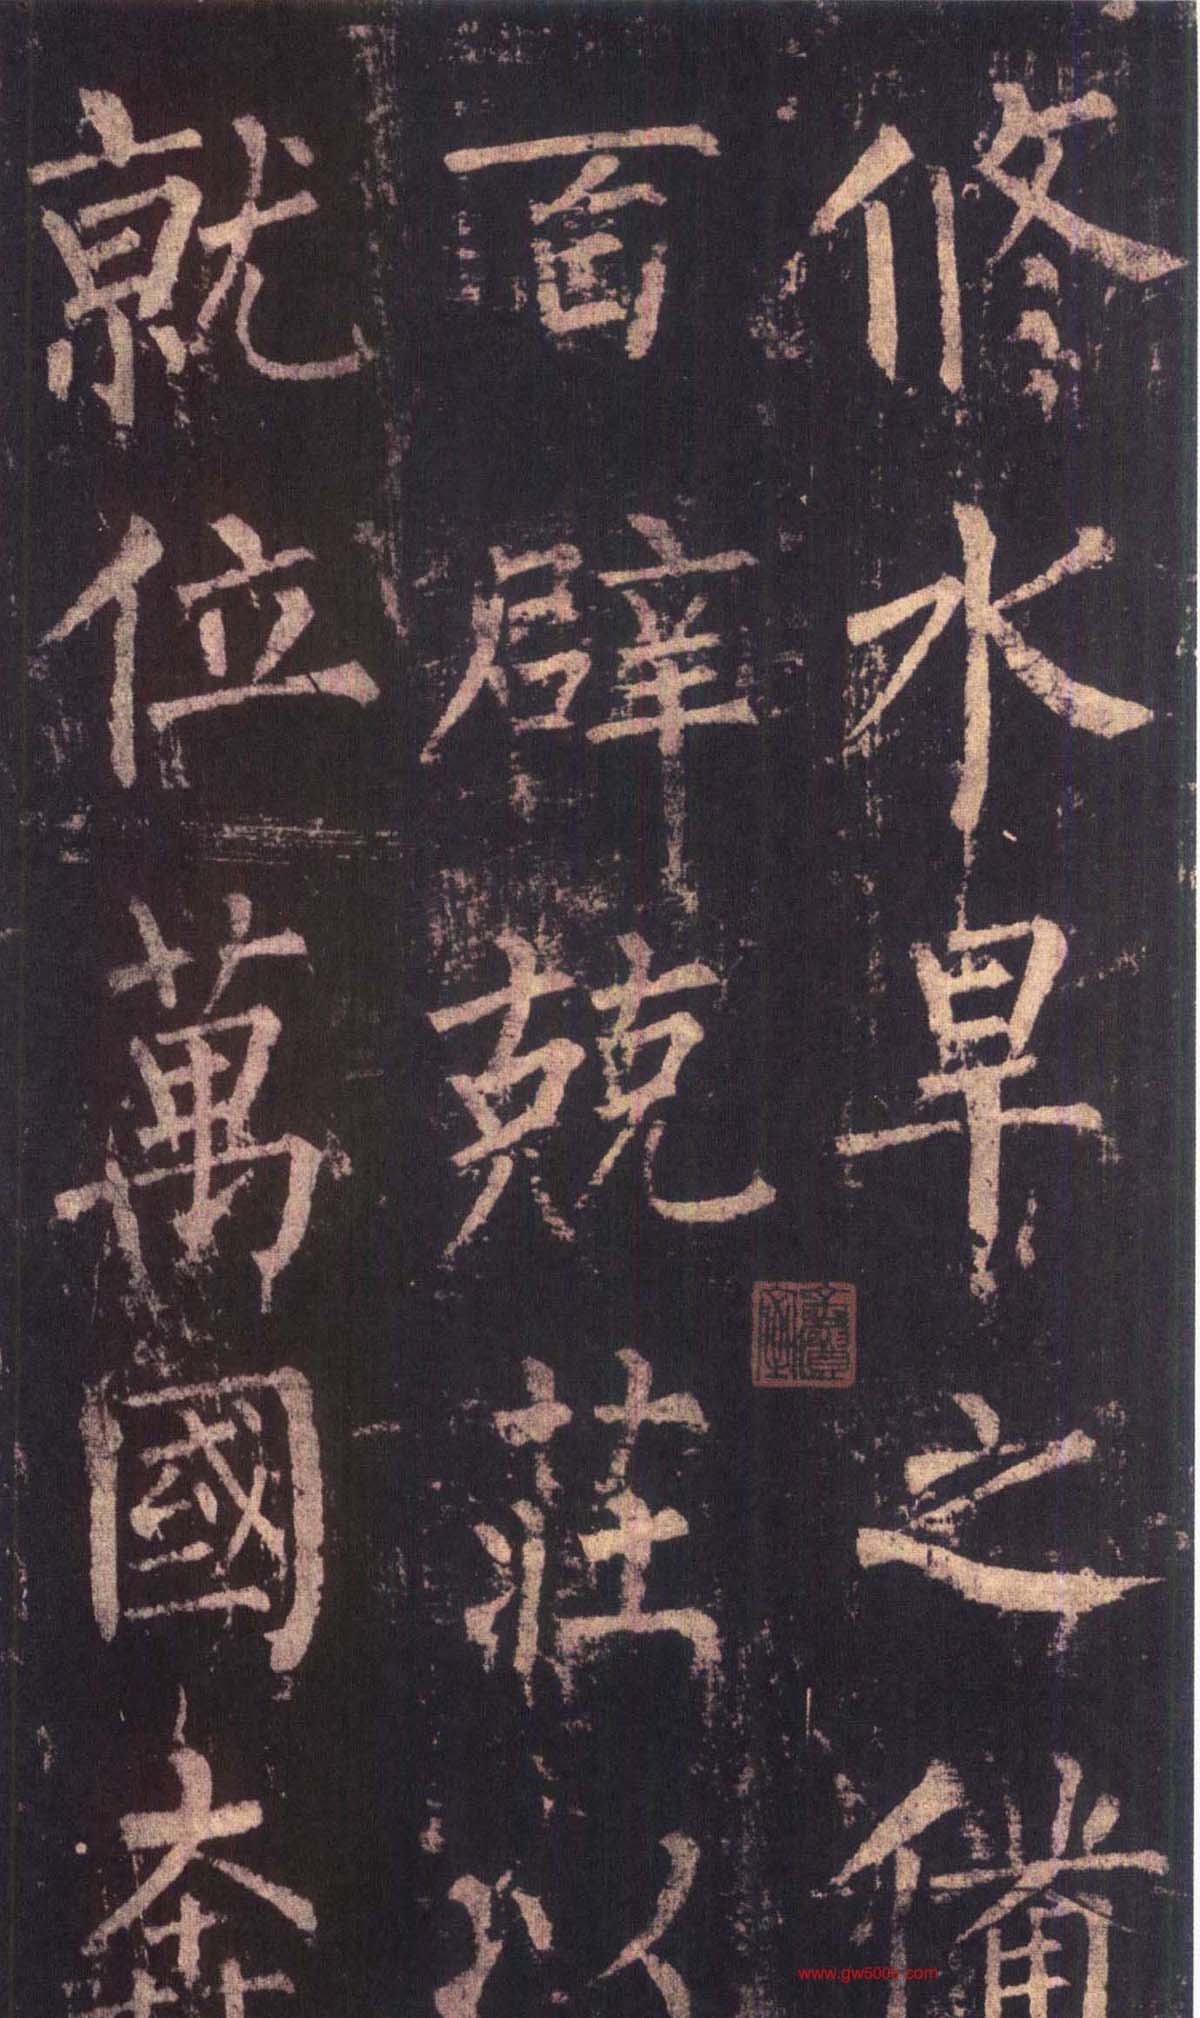 修水旱之備
百辟兢莊以
就位萬國奔
www.gw5006.com